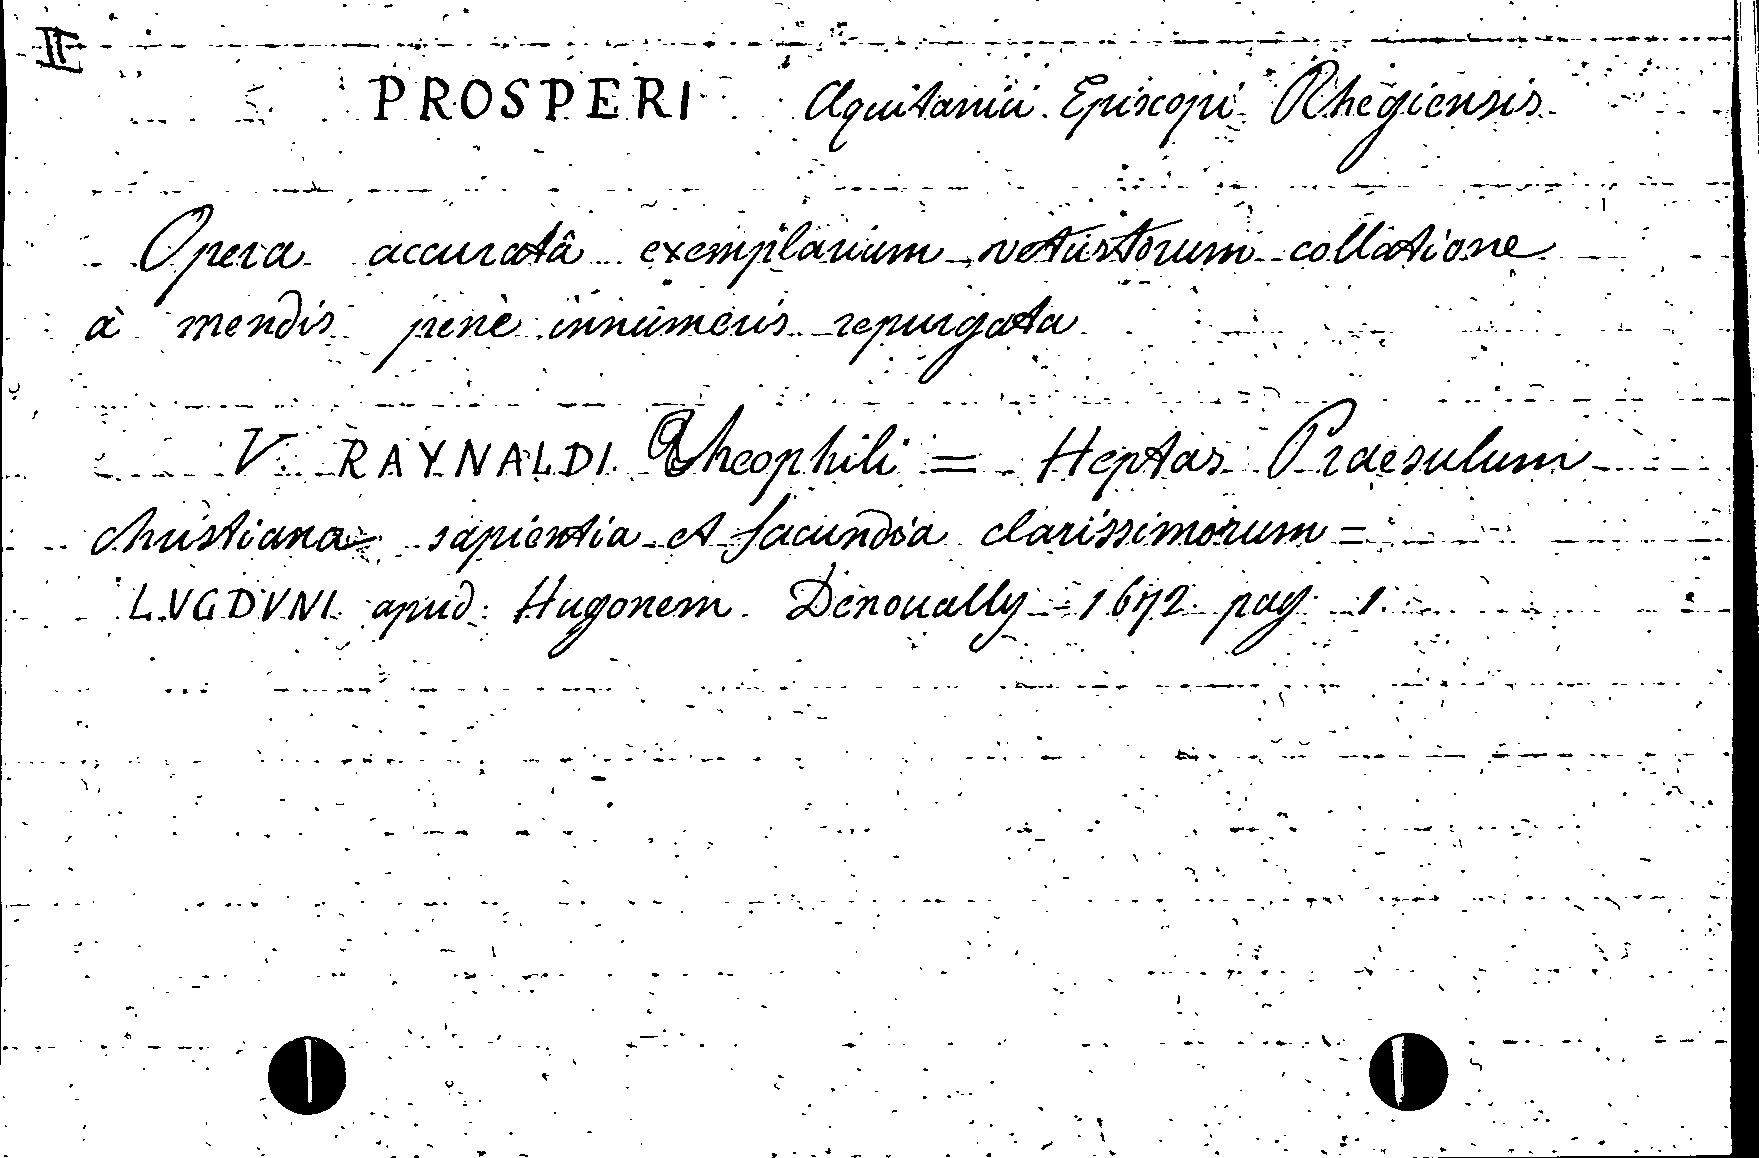 II
PROSPERI Aquitanici Episcopi Rhegiensis
Opera accuratâ exemplarium vetustorum collatione
à mendis penè innumeris repurgata
V. RAYNALDI Theophili = Heptas Praesulum
christiana sapientia et facundia clarissimorum =
LVGDVNI apud Hugonem Denoually 1672 pag. 1